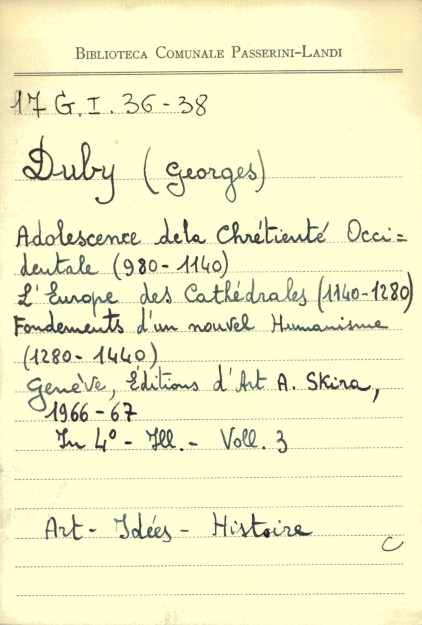 BIBLIOTECA COMUNALE PASSERINI-LANDI
17 G. I. 36-38
Duby (Georges)
Adolescence dela Chrétienté Occi=
dentale (980-1140)
L'Europe des Cathédrales (1140-1280)
Fondements d'un nouvel Humanisme
(1280-1440)
Genève, Éditions d'Art A. Skira,
1966-67
In 4° - Ill. - Voll. 3
Art - Idées - Histoire
C